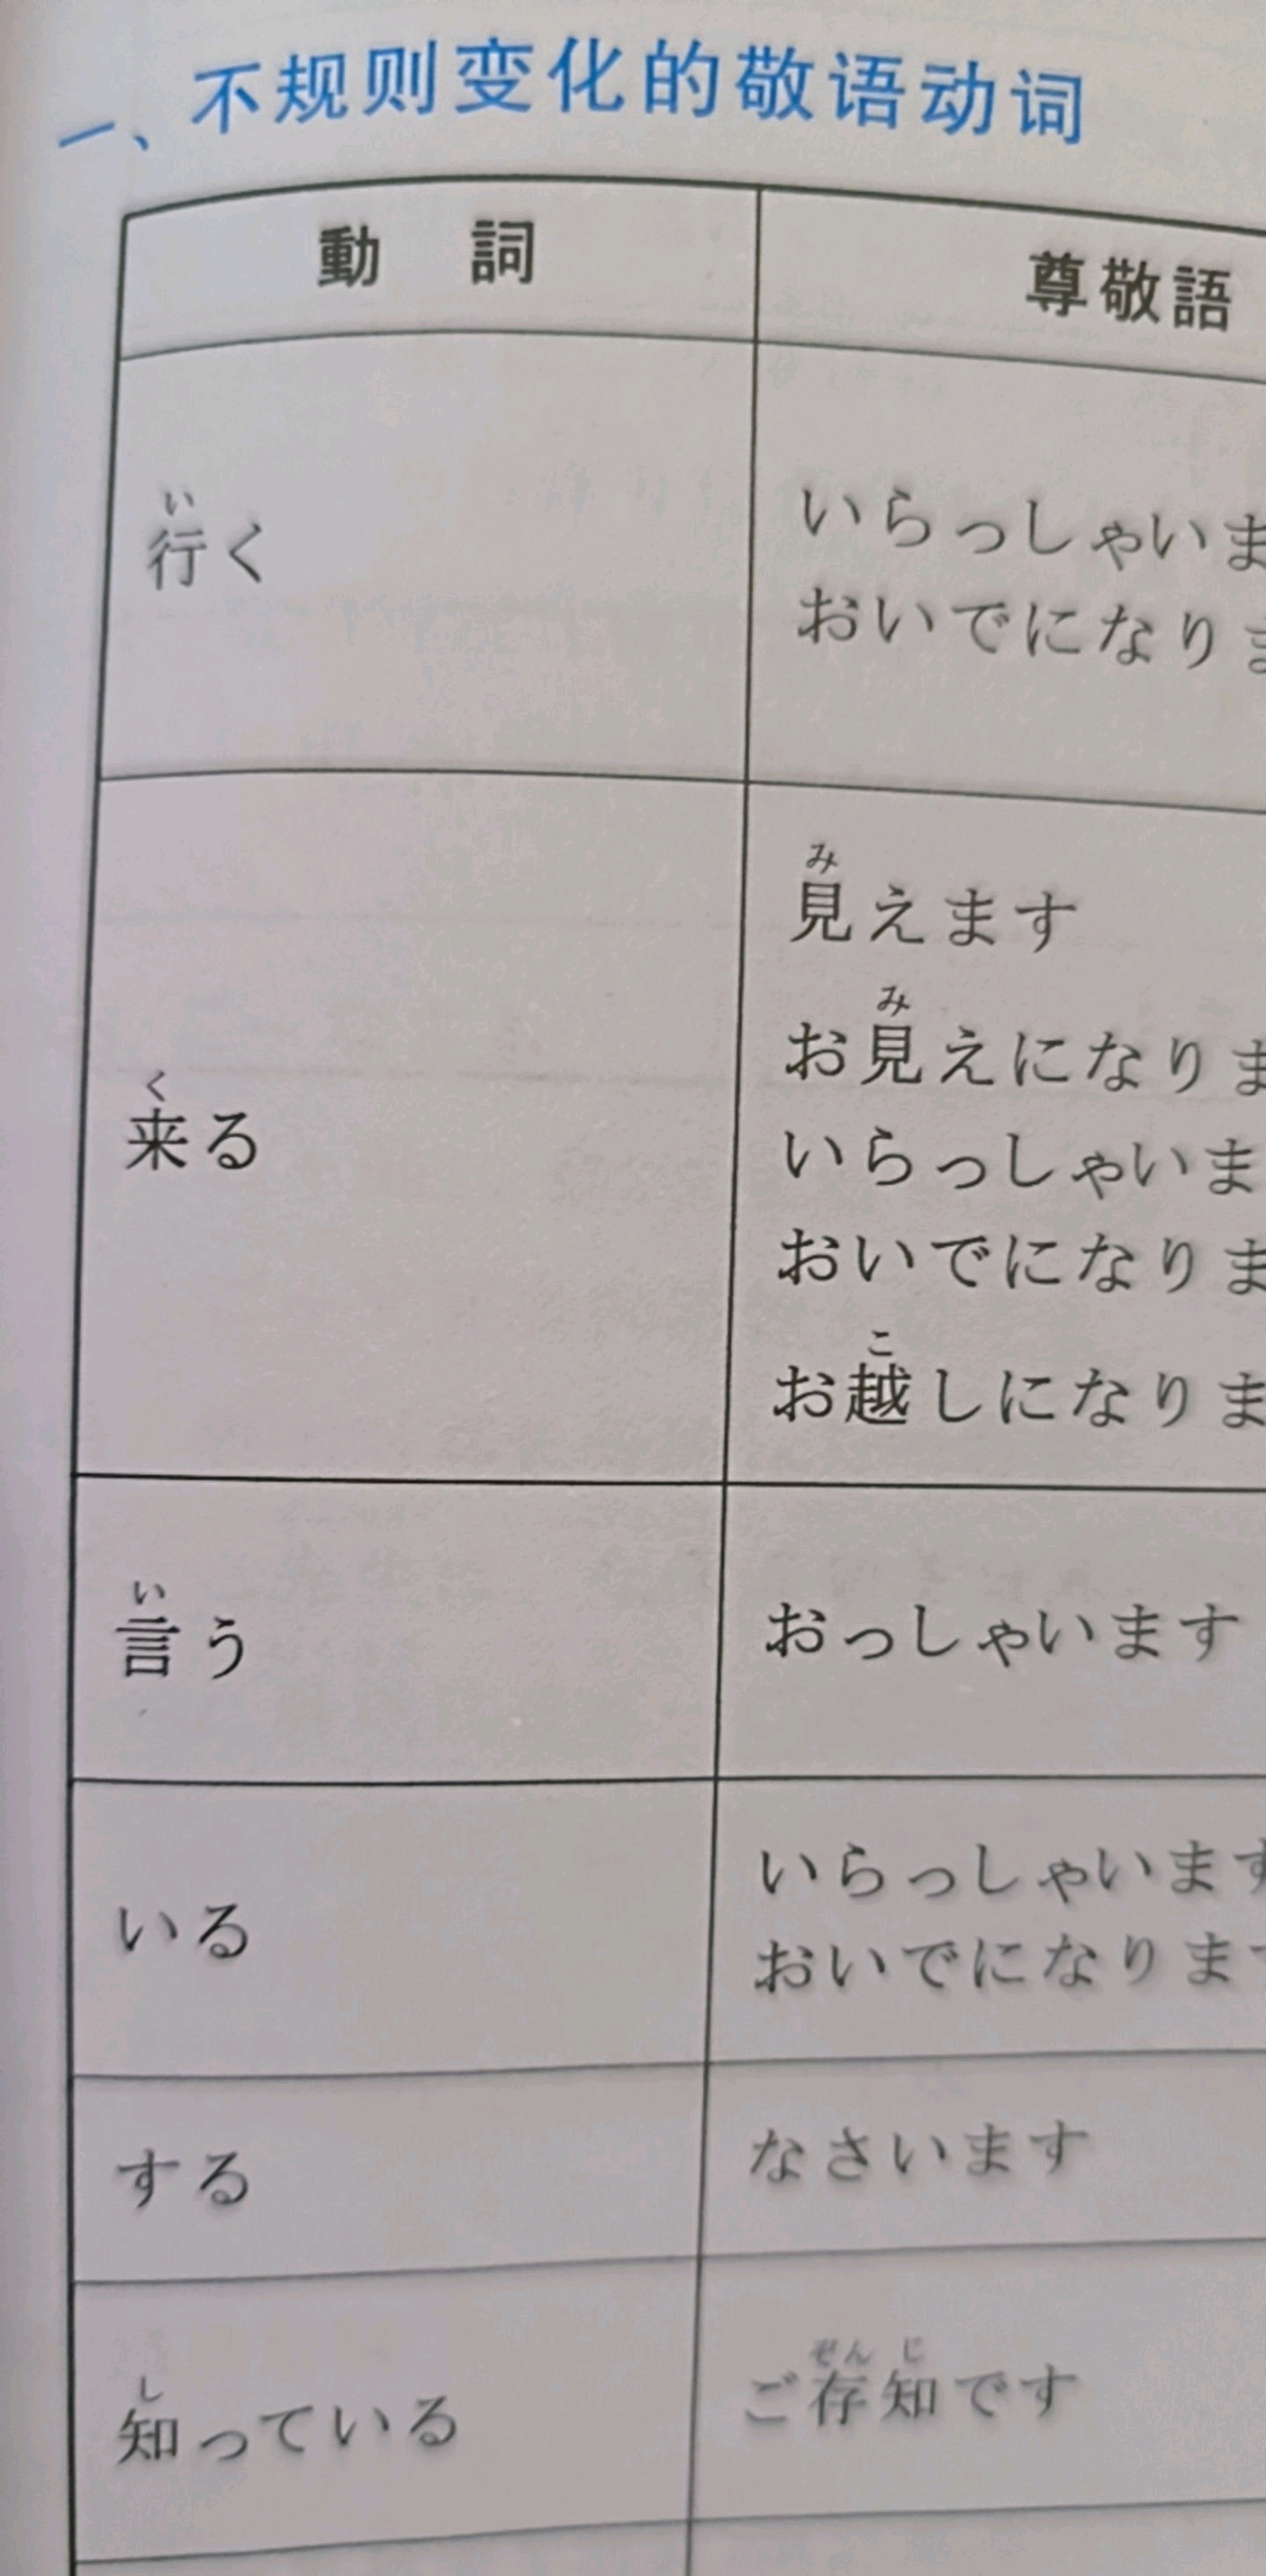 一、不规则变化的敬语动词
動 詞 尊敬語
い
行く
いらっしゃいま
おいでになりま
く
来る
み
見えます
み
お見えになりま
いらっしゃいま
おいでになりま
こ
お越しになりま
い
言う
おっしゃいます
いる
いらっしゃいます
おいでになります
する
なさいます
し
知っている
ぞんじ
ご存知です